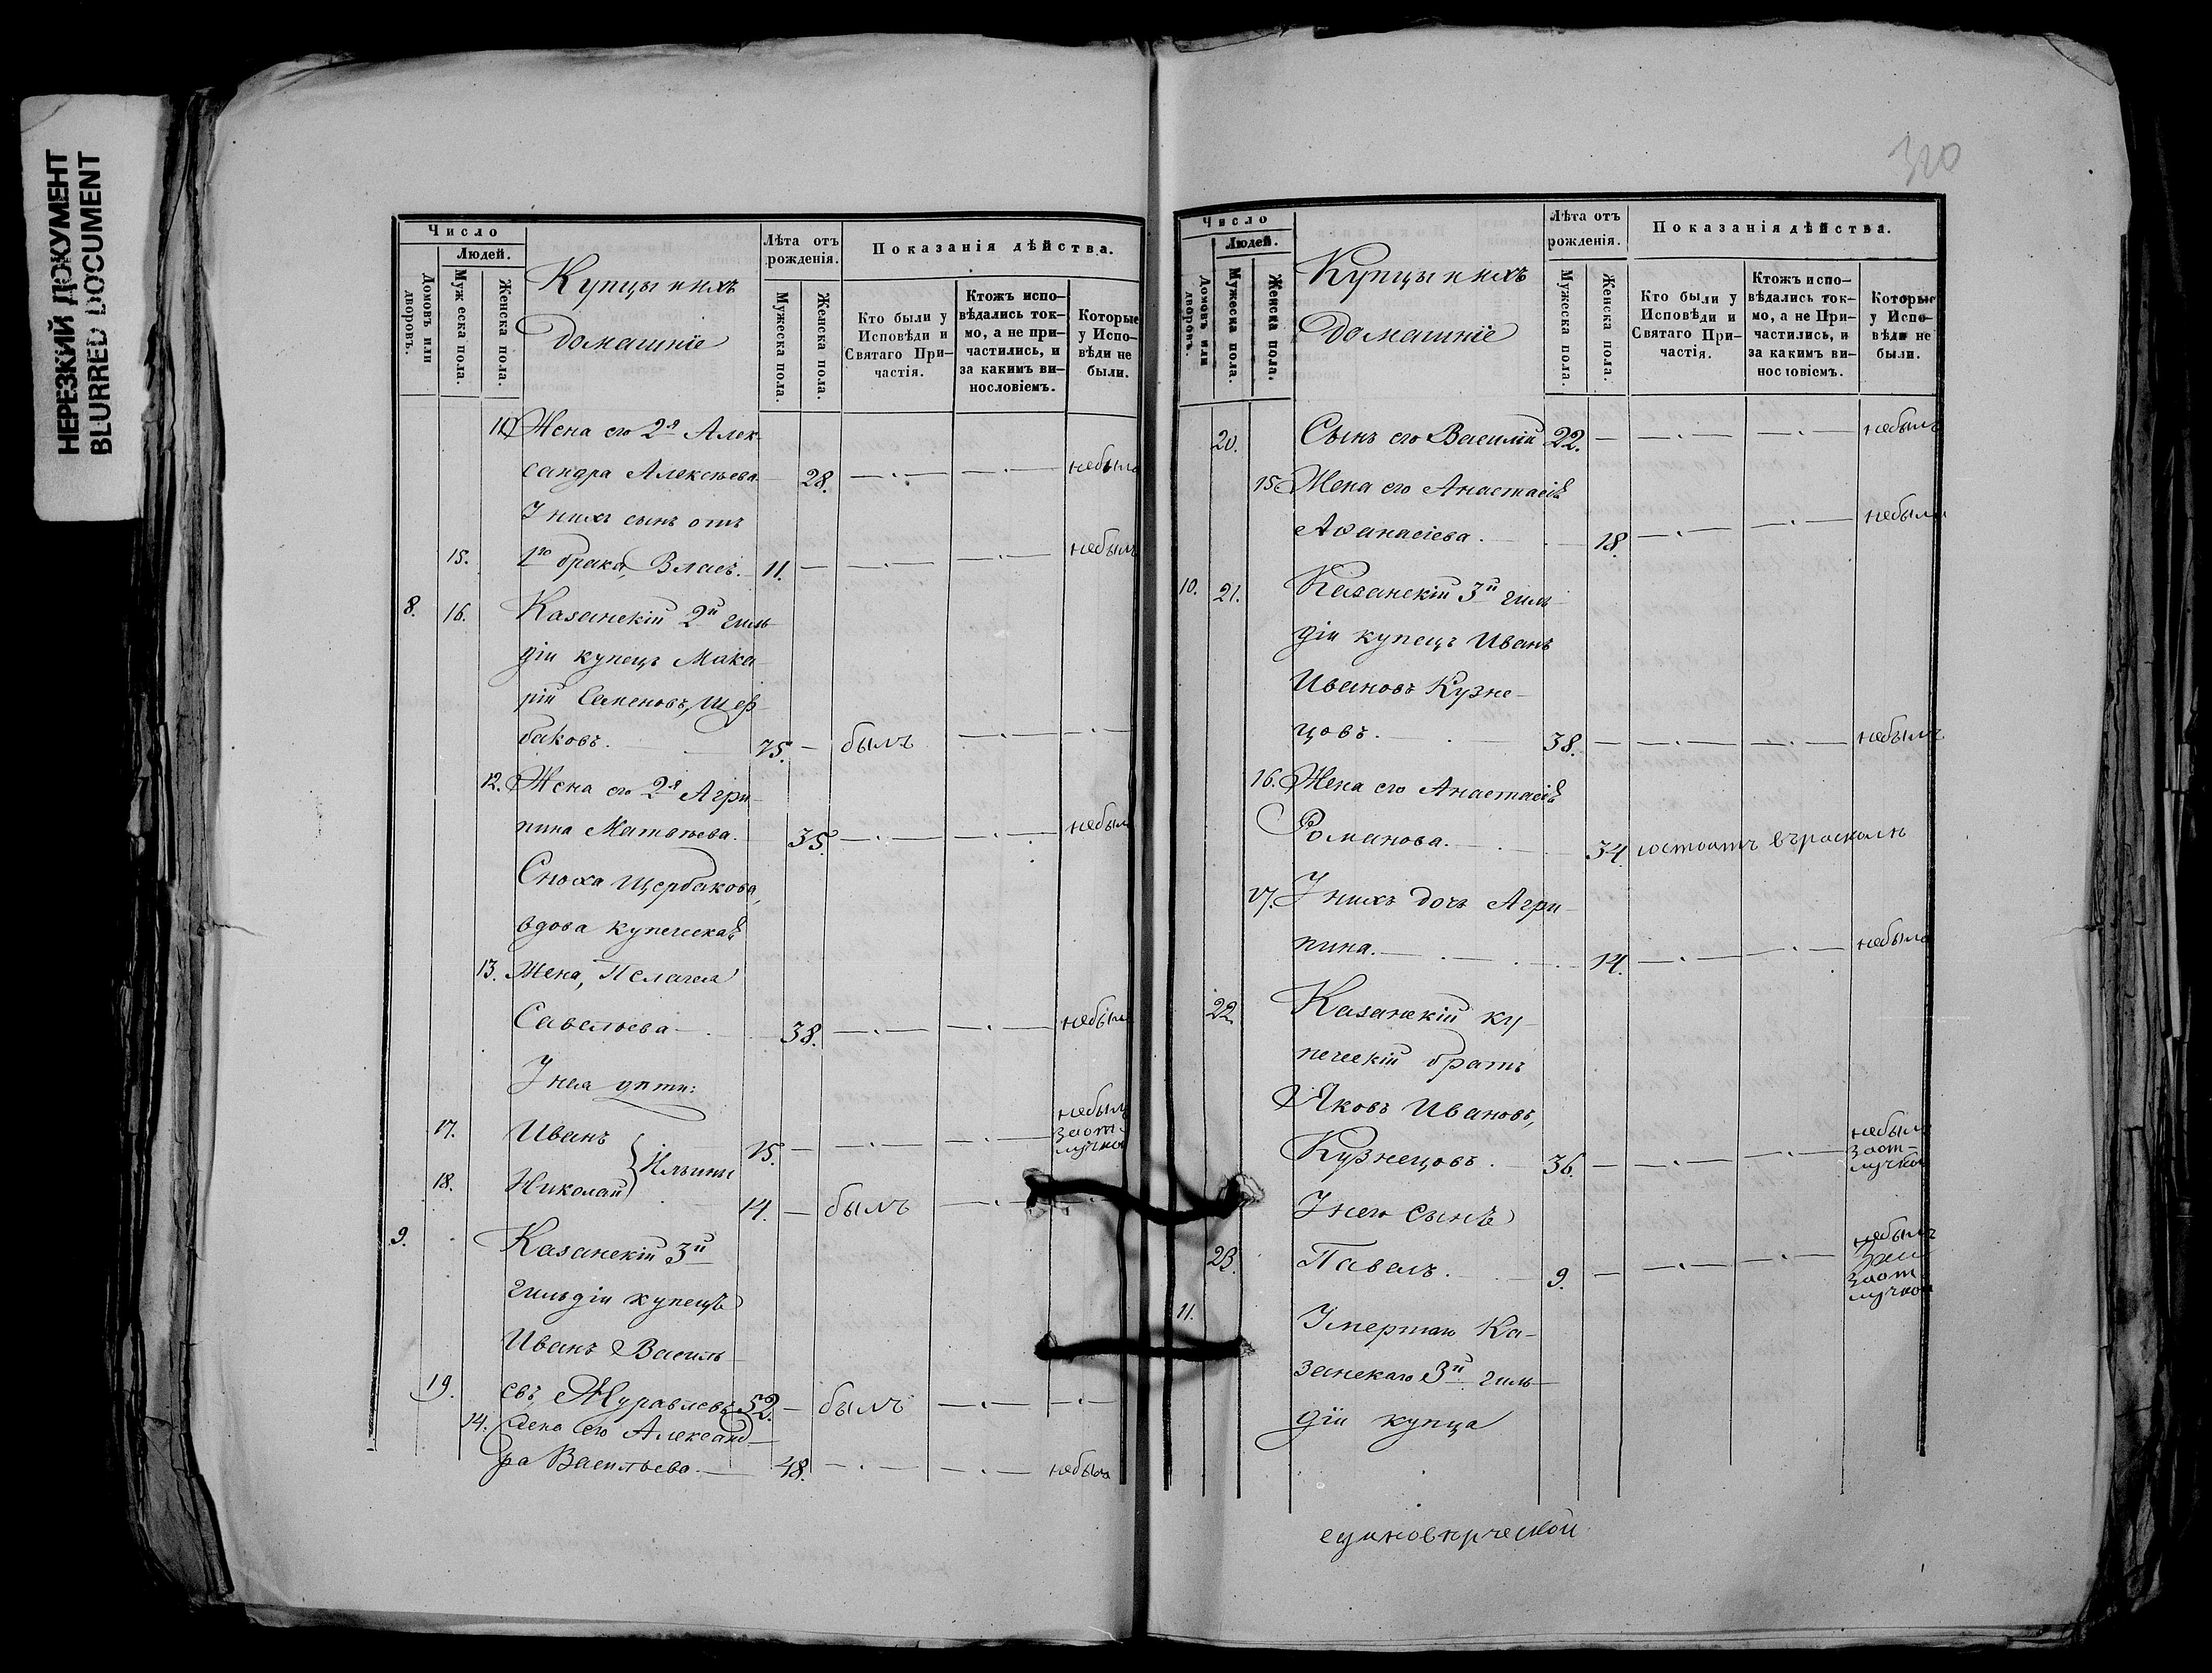 НЕРЕЗКИЙ ДОКУМЕНТ
BLURRED DOCUMENT
Число
Людей.
Домовъ или дворовъ.
Мужеска пола.
Женска пола.
Купцы и ихъ
домашніе
Лѣта отъ рожденія.
Мужеска пола.
Женска пола.
Показанія дѣйства.
Кто были у Исповѣди и Святаго При-частія.
Ктожъ испо-вѣдались ток-мо, а не при-частились, и за какимъ ви-нословіемъ.
Которые у Испо-вѣди не были.
11. Жена его 2я Алек-
сандра Алексѣева 28. небыла
У нихъ сынъ отъ
15. 1го брака, Власъ. 11. небылъ
8. 16. Казанскій 2й гиль-
діи купецъ Мака-
рій Семеновъ, Щер-
баковъ. 75. былъ
12. Жена его 2я Агри-
пина Матвѣева. 35. небыла
Сноха Щербакова,
вдова купеческая
13. Жена, Пелагея
Савельева 38. небыла
У нея дѣти:
17. Иванъ 15. небылъ заот-лучкой
18. Николай } Ильины 14. былъ
9. Казанскій 3й
гильдіи купецъ
Иванъ Василь-
19. евъ, Журавлевъ 52. былъ
14. Жена его Александ-
ра Васильева. 48. небыла
320
Число
Людей.
Домовъ или дворовъ.
Мужеска пола.
Женска пола.
Купцы и ихъ
домашніе
Лѣта отъ рожденія.
Мужеска пола.
Женска пола.
Показанія дѣйства.
Кто были у Исповѣди и Святаго При-частія.
Ктожъ испо-вѣдались ток-мо, а не При-частились, и за какимъ ви-нословіемъ.
Которые у Испо-вѣди не были.
20. Сынъ его Василій 22. небылъ
15. Жена его Анастасія
Аѳанасіева. 18. небыла
10. 21. Казанскій 3й гиль-
діи купецъ Иванъ
Ивановъ Кузне-
цовъ. 38. небылъ
16. Жена его Анастасія
Романова. 34. состоитъ въ расколѣ
17. У нихъ дочь Агри-
пина. 14. небыла
22. Казанскій ку-
печескій братъ
Яковъ Ивановъ,
Кузнецовъ. 36. небылъ заот-лучкой
У него сынъ
23. Павелъ. 9. небылъ заот-лучкой
11. Умершаго Ка-
занскаго 3й гиль-
діи купца
единовѣрческой